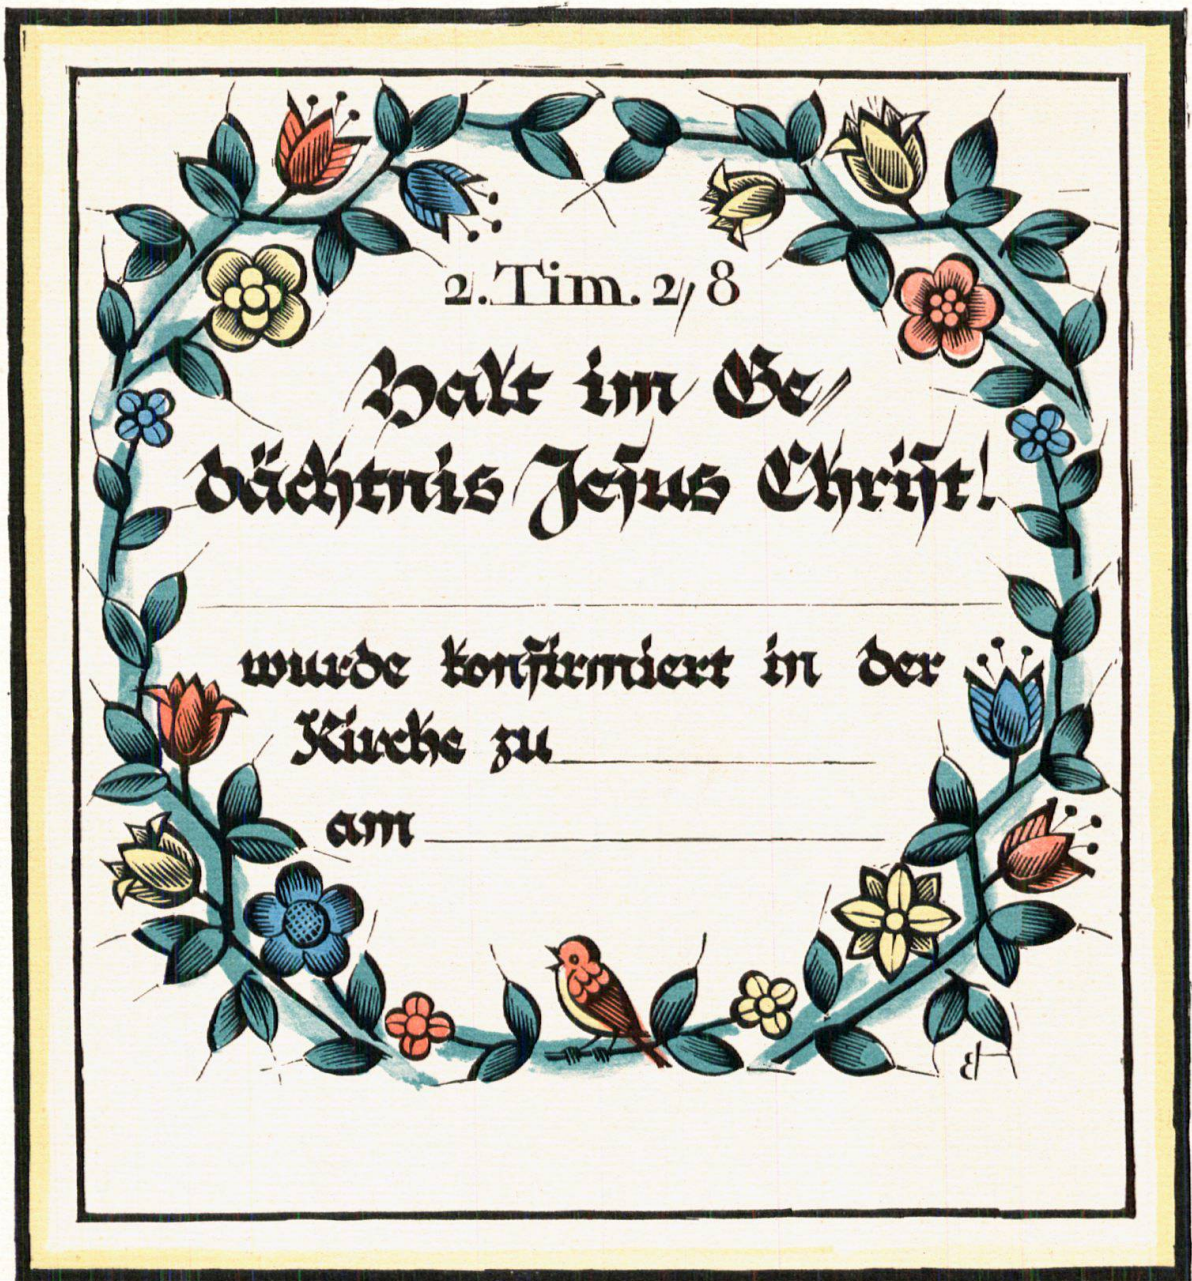 2. Tim. 2, 8
Halt im Ge-
dächtnis Jesus Christ!
wurde konfirmiert in der
Kirche zu
am